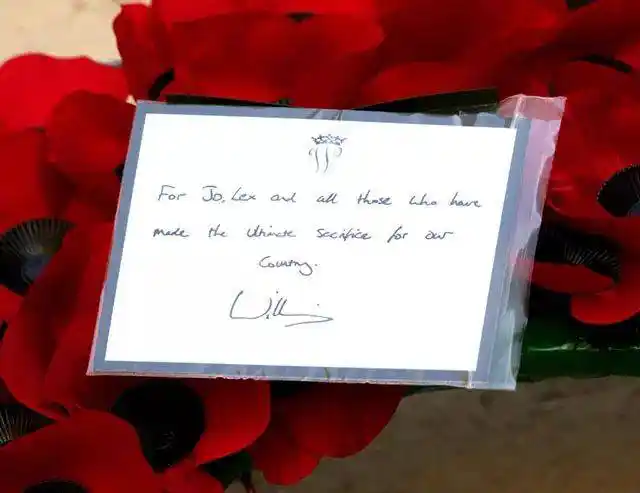 For Jo, Lex and all those who have
made the ultimate sacrifice for our
Country.
William